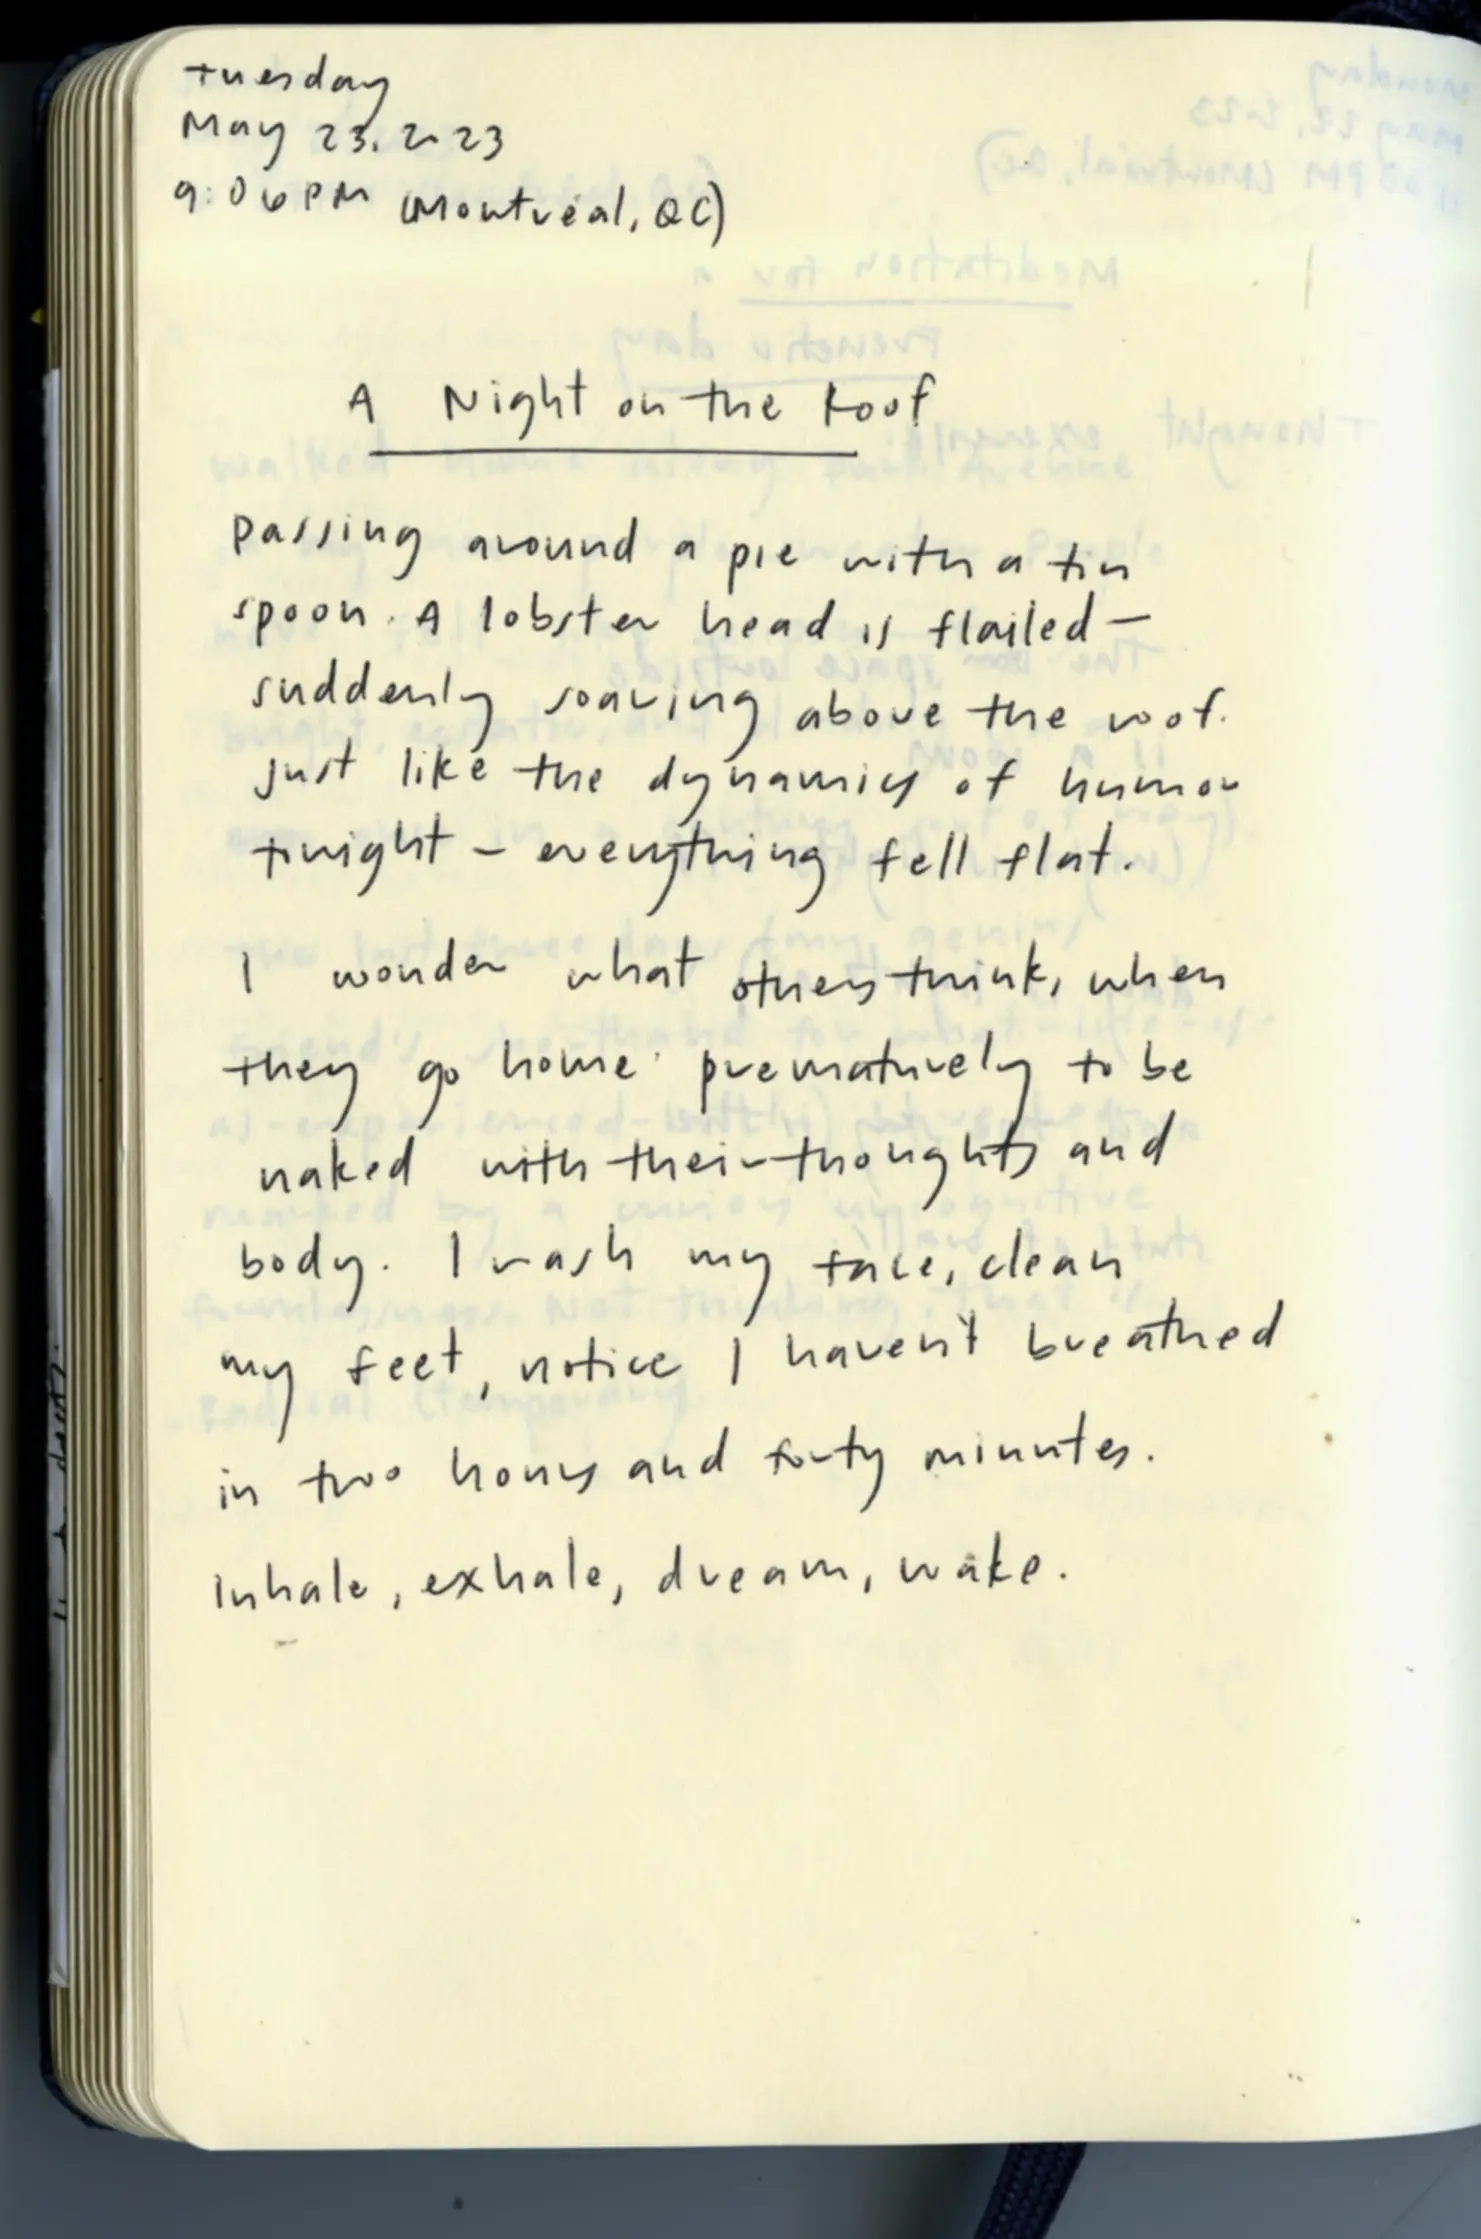 Tuesday
May 23, 2023
9:06 PM (Montreal, QC)
A Night on the Roof
Passing around a pie with a tin
spoon. A lobster head is flailed —
suddenly soaring above the roof.
Just like the dynamics of humor
tonight — everything fell flat.
I wonder what others think, when
they go home prematurely to be
naked with their thoughts and
body. I wash my face, clean
my feet, notice I haven't breathed
in two hours and forty minutes.
Inhale, exhale, dream, wake.